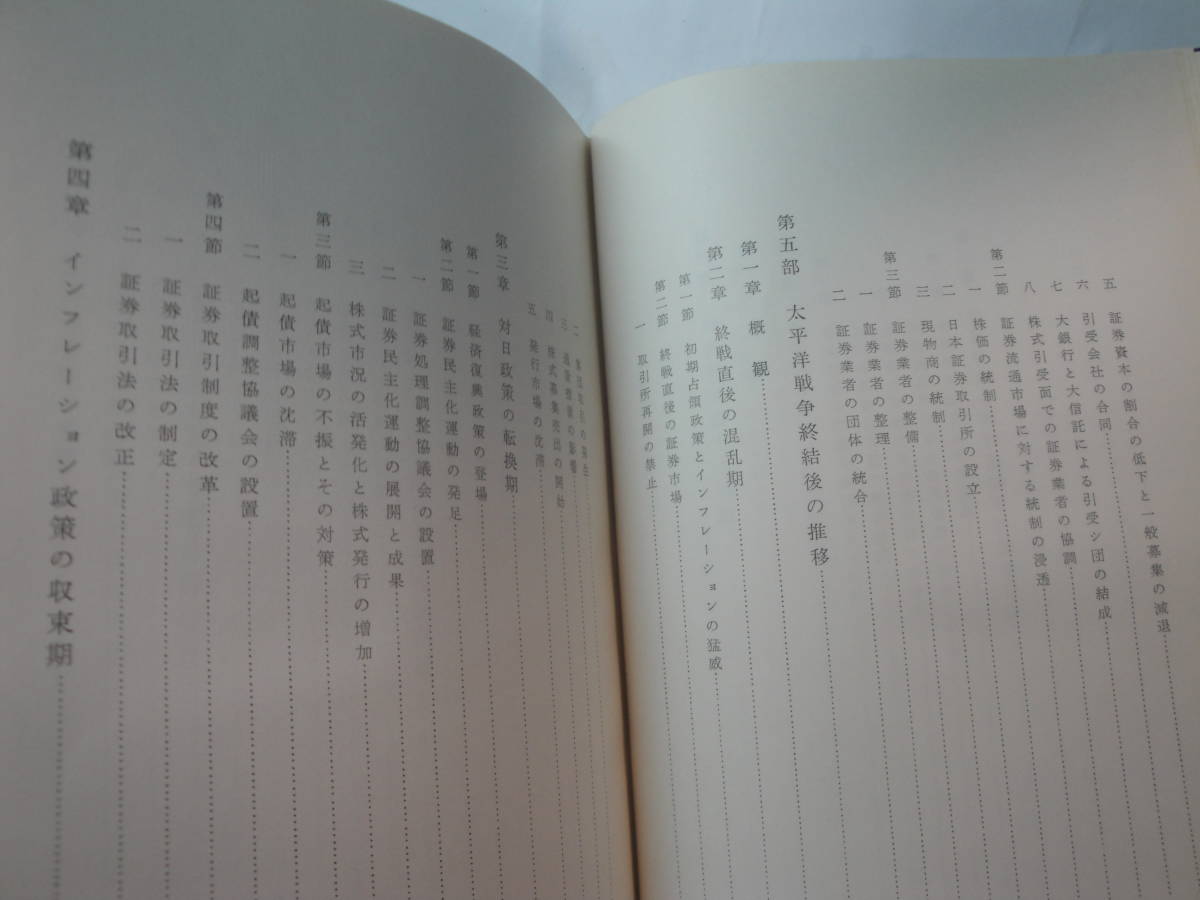 五 証券資本の割合の低下と一般募集の減退
六 引受会社の合同
七 大銀行と大信託による引受シ団の結成
八 株式引受面での証券業者の協調
第二節 証券流通市場に対する統制の浸透
一 株価の統制
二 日本証券取引所の設立
三 現物商の統制
第三節 証券業者の整備
一 証券業者の整理
二 証券業者の団体の統合
第五部 太平洋戦争終結後の推移
第一章 概観
第二章 終戦直後の混乱期
第一節 初期占領政策とインフレーションの猛威
第二節 終戦直後の証券市場
一 取引所再開の禁止
二 集団取引の
三
四 株式募集売出の開始
五 発行市場の沈滞
第三章 対日政策の転換期
第一節 経済復興政策の登場
第二節 証券民主化運動の発足
一 証券処理調整協議会の設置
二 証券民主化運動の展開と成果
三 株式市況の活発化と株式発行の増加
第三節 起債市場の不振とその対策
一 起債市場の沈滞
二 起債調整協議会の設置
第四節 証券取引制度の改革
一 証券取引法の制定
二 証券取引法の改正
第四章 インフレーション政策の収束期